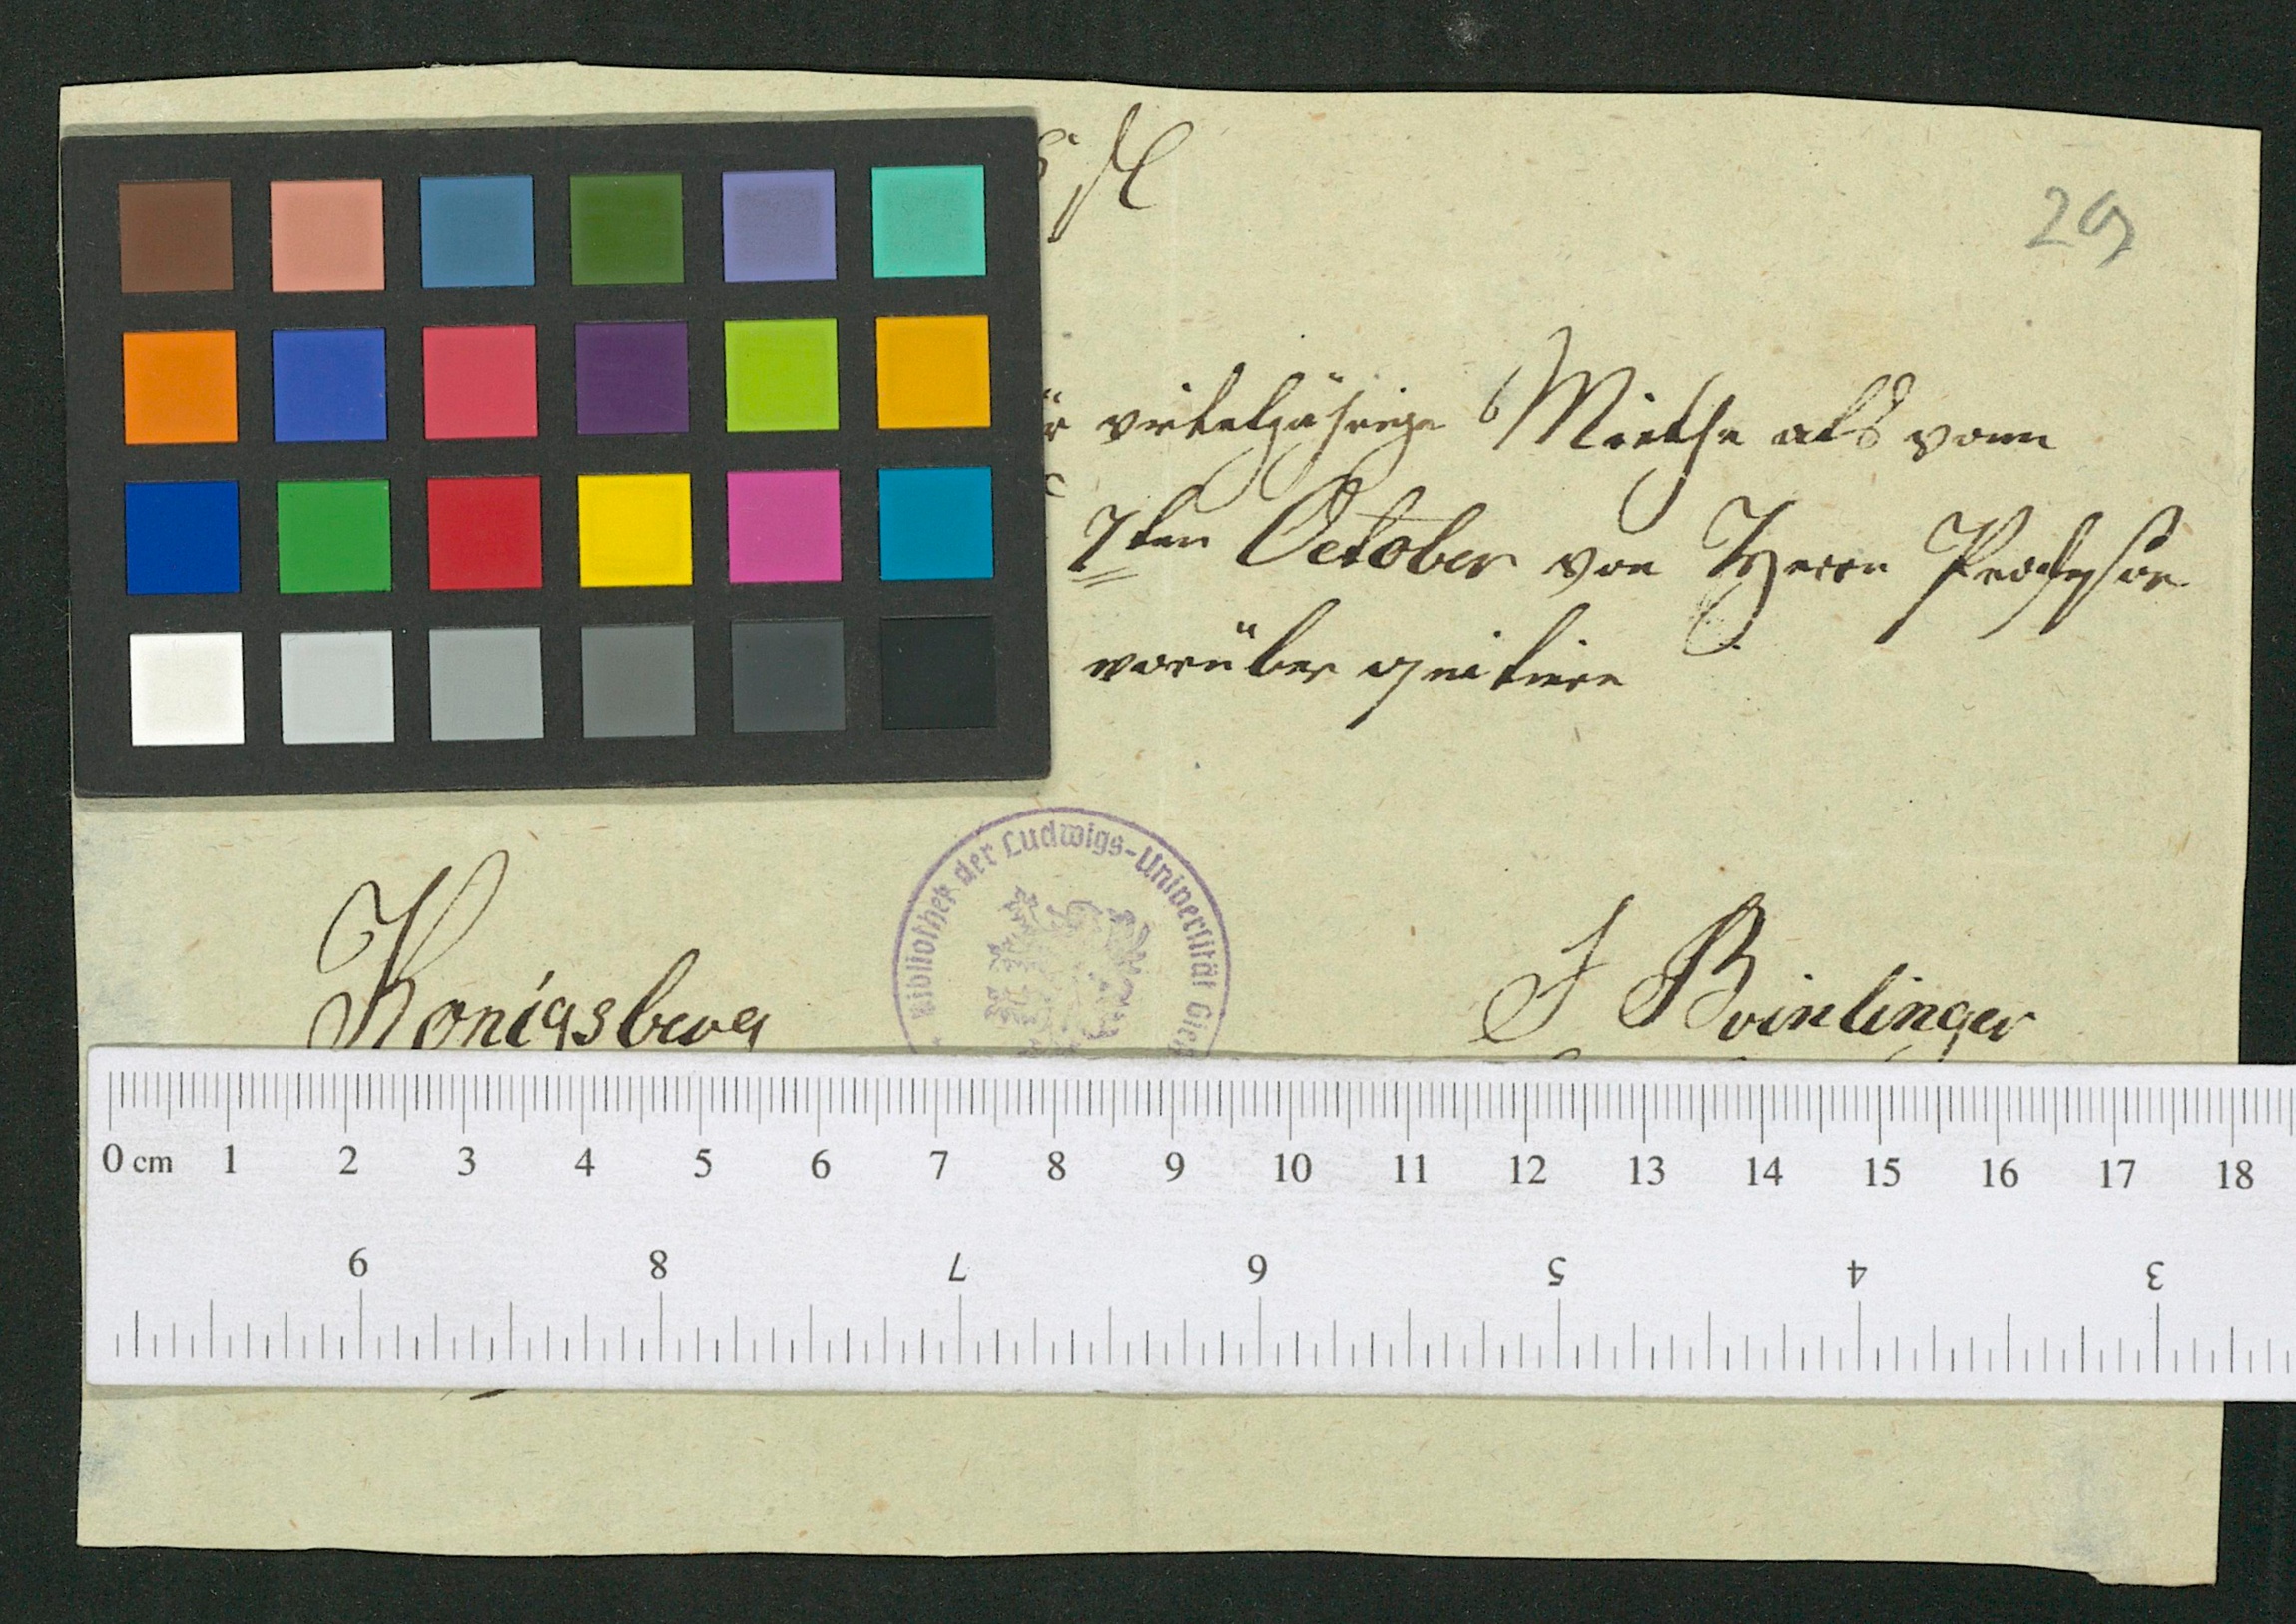 29
virteljährige Miethe als vom
7ten October von Herrn Professor
worüber quitiere
Bibliothek der Ludwigs-Universität Gieß
Konigsberg
J Brinlinger
0 cm 1 2 3 4 5 6 7 8 9 10 11 12 13 14 15 16 17 18
9 8 7 6 5 4 3